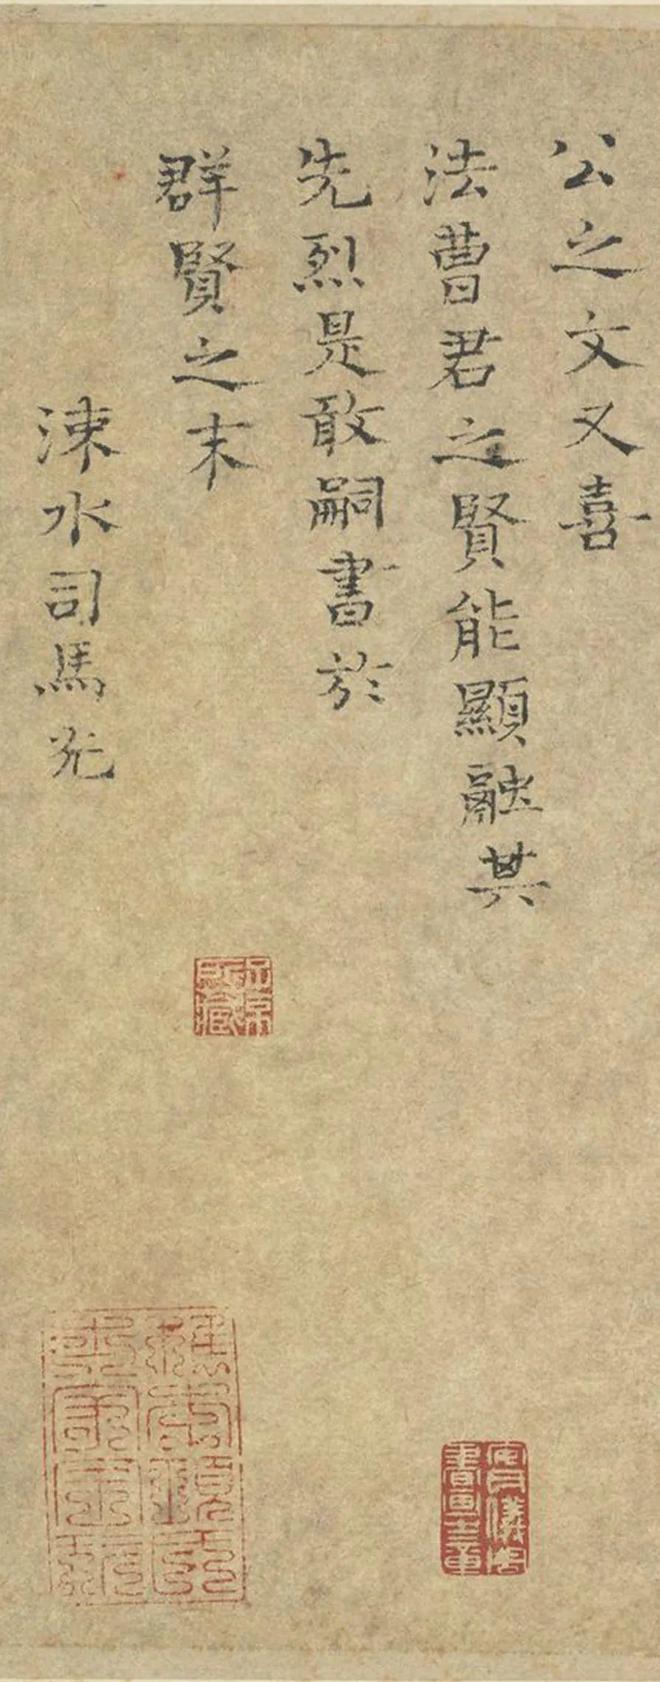 公之文又喜
法曹君之賢能顯融其
先烈是敢嗣書於
群賢之末
涑水司馬光